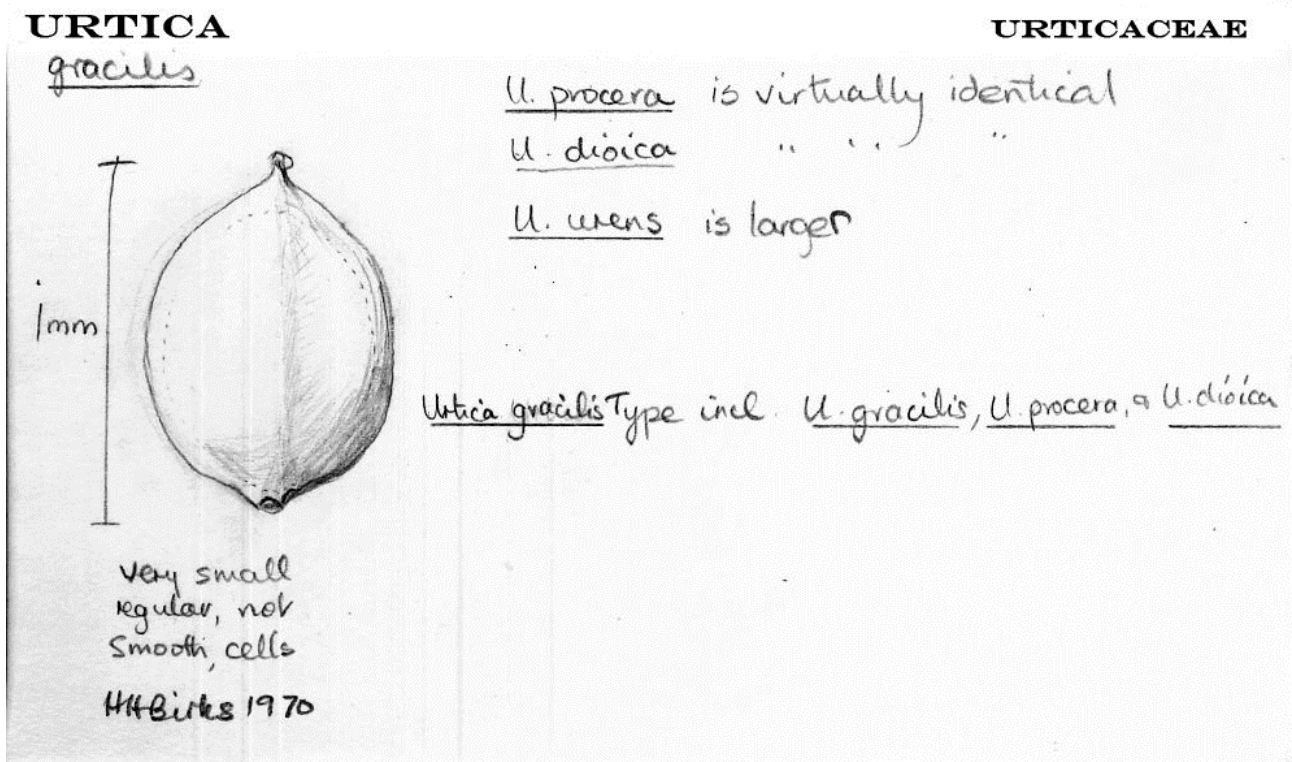 URTICA
URTICACEAE
gracilis
U. procera is virtually identical
U. dioica " " "
U. urens is larger
1mm
Urtica gracilis Type incl. U. gracilis, U. procera, & U. dioica
very small
regular, not
smooth, cells
HHBirks 1970